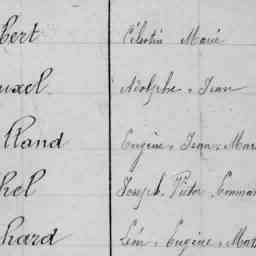 bert Célestin Marie
uxel Adolphe, Jean
lland Eugène, Jean, Mar
hel Joseph, Victor, Comman
chard Léon, Eugène, Mat